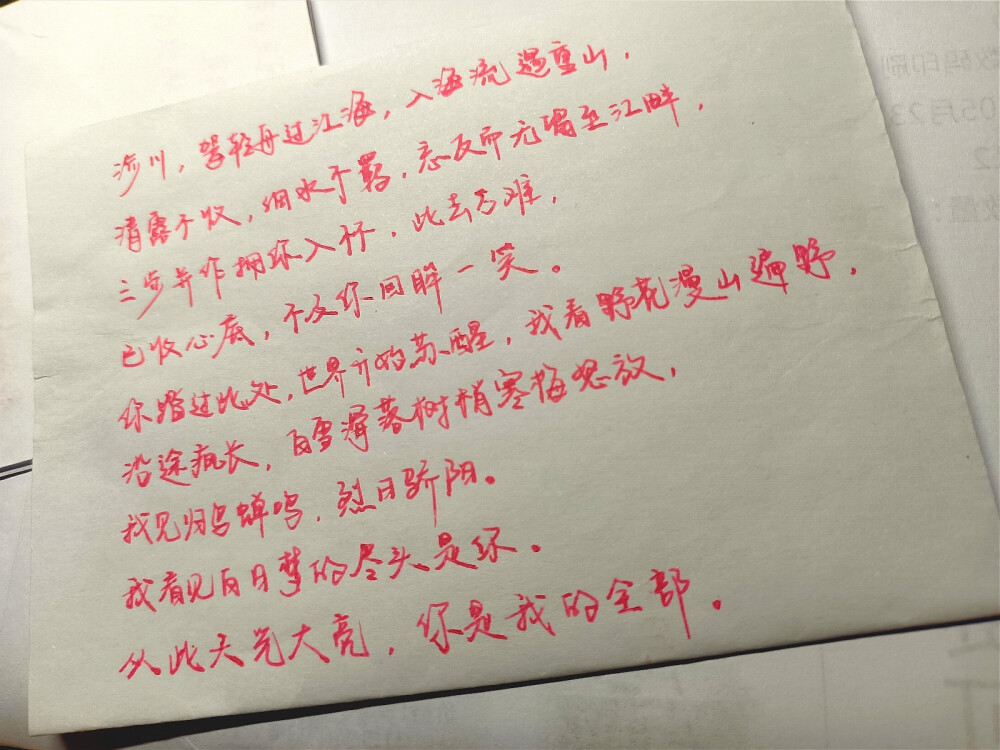 涉川，驾轻舟过江海，入海流遇重山，
清露不收，细水不羁，忘反而无谒至江畔，
三步并作拥你入怀，此去万难，
已收心底，不及你回眸一笑。
你踏过此处，世界方始苏醒，我看野花漫山遍野，
沿途疯长，白雪滑落树梢寒梅怒放，
我见归鸟蝉鸣，烈日骄阳。
我看见白日梦的尽头是你。
从此天光大亮，你是我的全部。
数码印刷
05月23
2